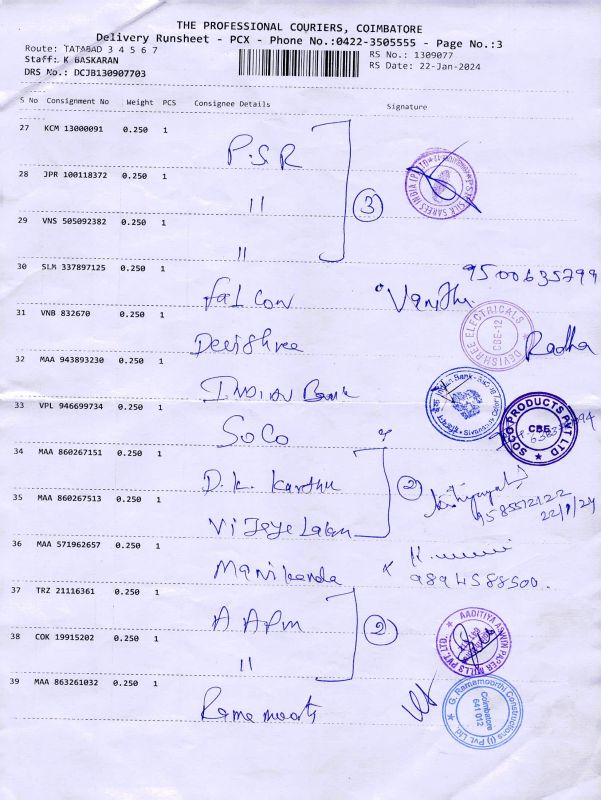 THE PROFESSIONAL COURIERS, COIMBATORE
Delivery Runsheet - PCX - Phone No.:0422-3505555 - Page No.:3
Route: TATABAD 3 4 5 6 7
RS No.: 1309077
Staff: K BASKARAN
RS Date: 22-Jan-2024
DRS No.: DCJB130907703
S No Consignment No Weight PCS Consignee Details Signature
27 KCM 13000091 0.250 1 P.S.R
28 JPR 100118372 0.250 1 11
3
29 VNS 505092382 0.250 1 11
30 SLM 337897125 0.250 1 falcon Vanitha 9500635799
31 VNB 832670 0.250 1 Devishree
DEVISHREE ELECTRICALS
CBE-12
Radha
32 MAA 943893230 0.250 1 Indian Bank
33 VPL 946699734 0.250 1 SoCo
SOCO PRODUCTS PVT LTD
CBE
34 MAA 860267151 0.250 1 D.K. Karthi
2
9585512122
22/1/24
35 MAA 860267513 0.250 1 Vijaye Laxm
36 MAA 571962657 0.250 1 Manikanda
9894588500.
37 TRZ 21116361 0.250 1 A A Pm
2
38 COK 19915202 0.250 1 11
AADITIYA ASWIN PAPER MILLS PVT. LTD.
39 MAA 863261032 0.250 1 Ramamoorthi
G. Ramamoorthi Constructions (I) Pvt. Ltd.
Coimbatore
641 012